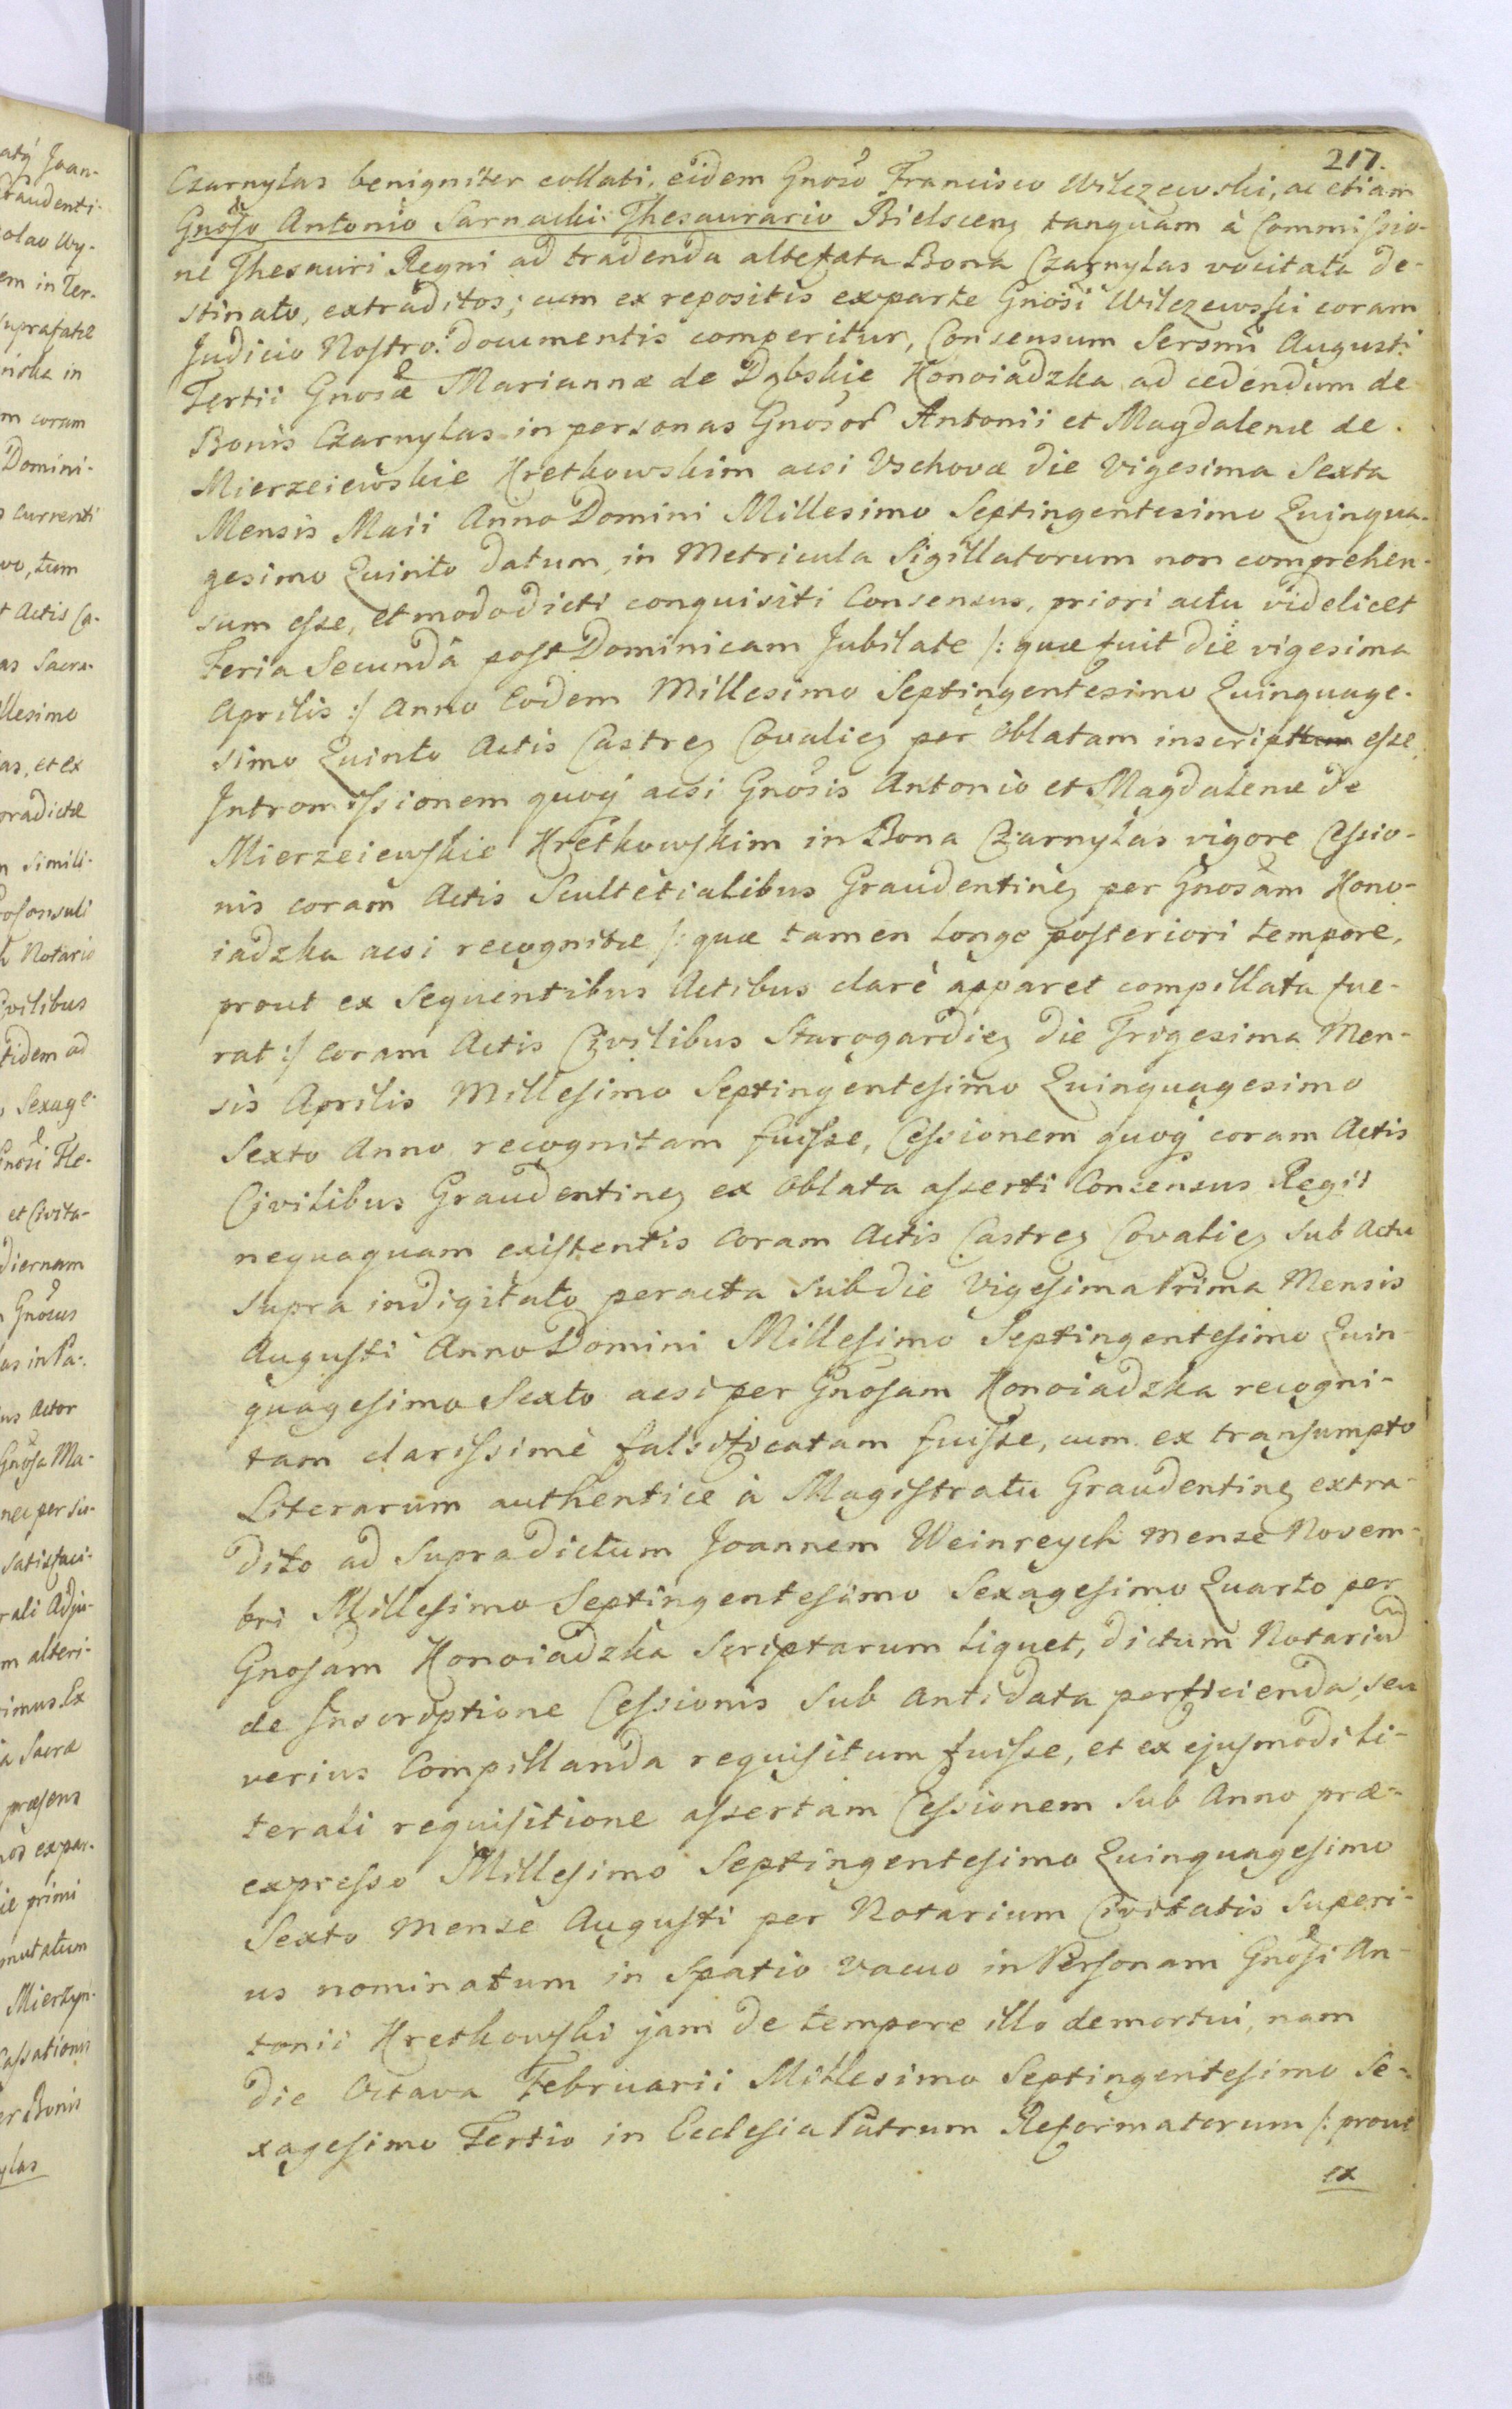 217.
Czarnylas benigniter collati, eidem Gnoso Francisco Wilczewski, ac etiam
Gnoso Antonio Sarnacki Thesaurario Bielscen tanquam à Commissio-
ne Thesauri Regni ad tradenda altefata Bona Czarnylas vocitata de-
stinato, extraditos; cum ex repositis exparte Gnosi Wilczewski coram
Judicio Nostro documentis comperitur, Consensum Sersmi Augusti
Tertii Gnosæ Mariannæ de Dąbskie Honoiadzka ad cedendum de
Bonis Czarnylas in personas Gnosor Antonii et Magdalenæ de
Mierzeiewskie Kretkowskim acsi Vschovæ die Vigesima Sexta
Mensis Maii Anno Domini Millesimo Septingentesimo Quinqua-
gesimo Quinto datum, in Metricula Sigillatorum non comprehen-
sum esse, et modo dicti conquisiti Consensus, priori actu videlicet
Feria Secunda post Dominicam Jubilate /: quæ fuit die vigesima
Aprilis :/ Anno Eodem Millesimo Septingentesimo Quinquage-
simo Quinto Actis Castren Covalien per Oblatam inscriptum esse,
Intromissionem quoq acsi Gnosis Antonio et Magdalenæ de
Mierzeiewskie Kretkowskim in Bona Czarnylas vigore Cessio-
nis coram Actis Scultetialibus Graudentinen per Gnosam Hono-
iadzka acsi recognitæ /: quæ tamen longe posteriori tempore,
prout ex Sequentibus Actibus clarè apparet compillata fue-
rat :/ coram Actis Civilibus Starogardien die Trigesima Men-
sis Aprilis Millesimo Septingentesimo Quinquagesimo
Sexto Anno recognitam fuisse, Cessionem quoq coram Actis
Civilibus Graudentinen ex Oblata asserti Consensus Regii
nequaquam existentis coram Actis Castren Covalien sub Actu
supra indigitato peracta sub die Vigesima Prima Mensis
Augusti Anno Domini Millesimo Septingentesimo Quin-
quagesimo Sexto acsi per Gnosam Honoiadzka recogni-
tam clarissimè falsificatam fuisse, cum ex transumpto
Literarum authentice à Magistratu Graudentinen extra-
dito ad Supradictum Joannem Weinreych mense Novem-
bri Millesimo Septingentesimo Sexagesimo Quarto per
Gnosam Honoiadzka Scriptarum liquet, dictum Notariu
de Inscriptione Cessionis sub antidata perficienda, seu
verius Compillanda requisitum fuisse, et ex ejusmodi li-
terali requisitione assertam Cessionem sub Anno præ-
expresso Millesimo Septingentesimo Quinquagesimo
Sexto mense Augusti per Notarium Civitatis superi-
us nominatum in Spatio vacuo in Personam Gnosi An-
tonii Kretkowski jam de tempore illo demortui, nam
die Octava Februarii Millesimo Septingentesimo Se-
xagesimo Tertio in Ecclesia Patrum Reformatorum /: prout
ex